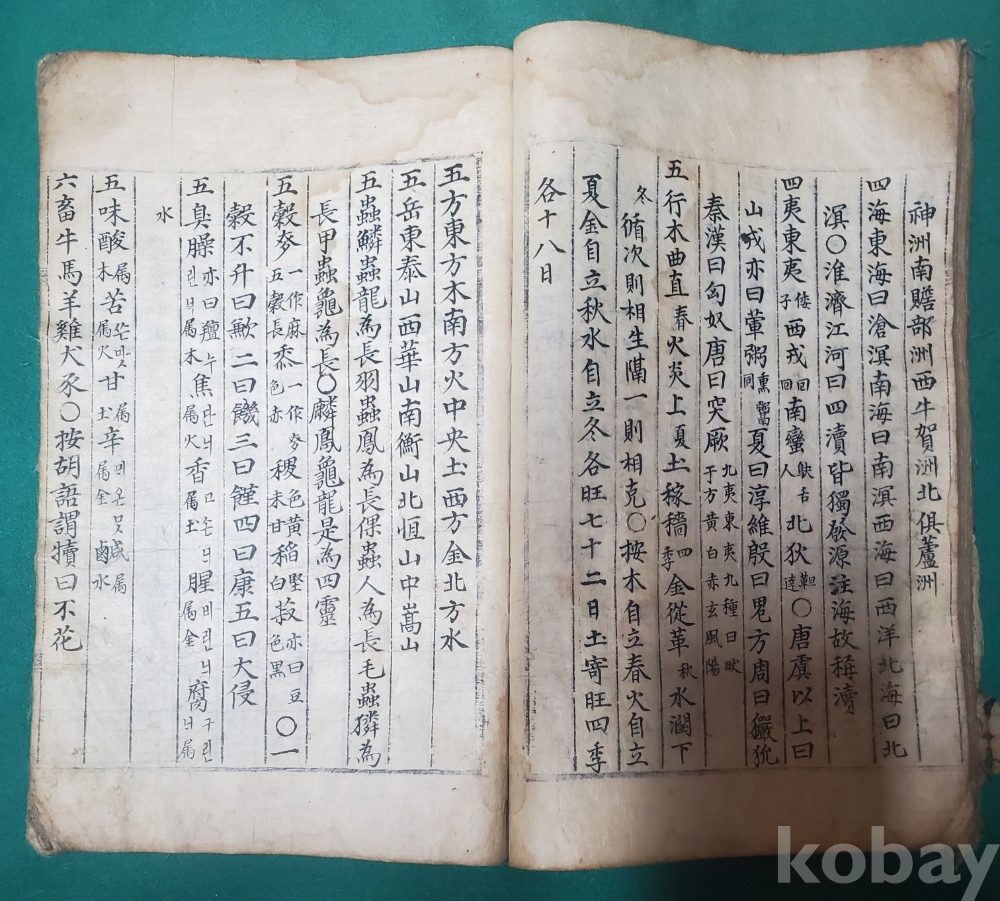 神洲南贍部洲西牛賀洲北俱蘆洲
四海東海曰滄溟南海曰南溟西海曰西洋北海曰北
溟〇淮濟江河曰四瀆皆獨發源注海故稱瀆
四夷東夷倭子西戎回回南蠻人北狄韃達〇唐虞以上曰
山戎亦曰葷粥熏鬻同夏曰淳維殷曰鬼方周曰玁狁
秦漢曰匈奴唐曰突厥北夷東夷九種曰畎于方黄白赤玄風陽
五行木曲直春火炎上夏土稼穡四季金從革秋水潤下
冬循次則相生隔一則相克〇按木自立春火自立
夏金自立秋水自立冬各旺七十二日土寄旺四季
各十八日
五方東方木南方火中央土西方金北方水
五岳東泰山西華山南衡山北恒山中嵩山
五蟲鱗蟲龍為長羽蟲鳳為長倮蟲人為長毛蟲獜為
長甲蟲龜為長〇麟鳳龜龍是為四靈
五穀麥一作麻五穀長黍一作麥色赤稷色黄未甘稻堅色白菽亦曰豆色黑〇一
穀不升曰歉二曰饑三曰饉四曰康五曰大侵
五臭臊亦曰羶누린닉属木焦탄닉属火香属土腥비린닉属金腐구린닉属
水
五味酸属木苦쓴맛属火甘属土辛属金鹹属水
六畜牛馬羊雞犬豕〇按胡語謂犢曰不花
kobay